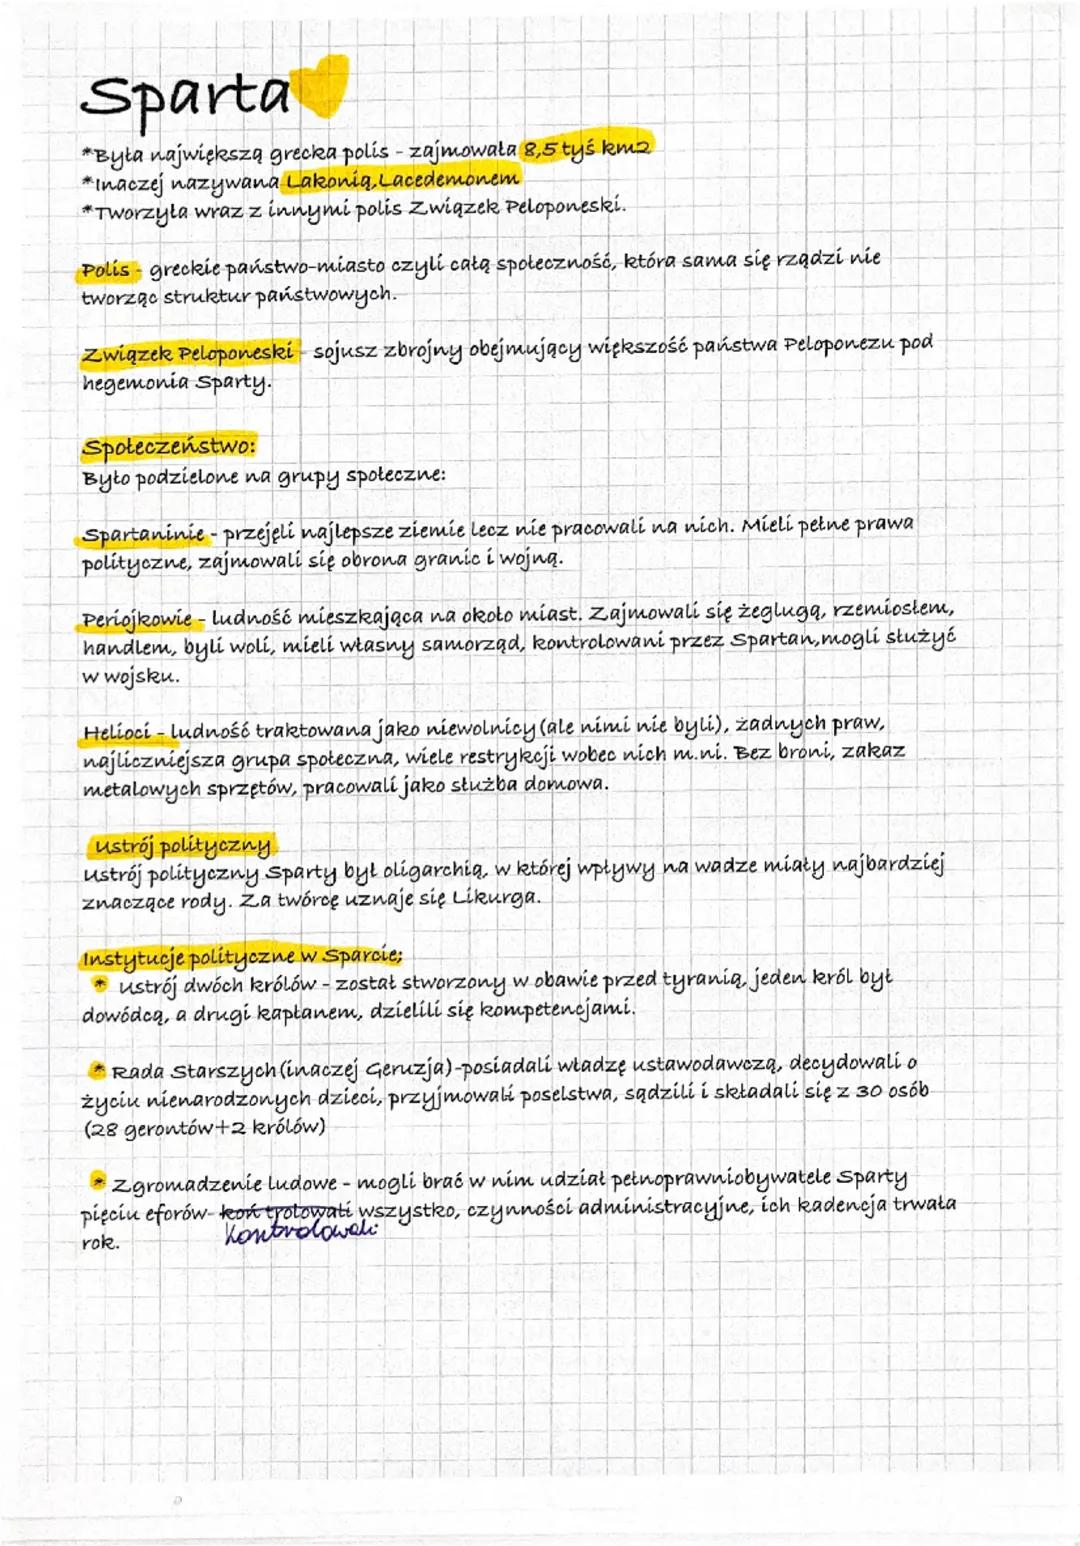 Sparta
*Była największą grecka polis - zajmowała 8,5 tyś km2
*Inaczej nazywana Lakonią, Lacedemonem
*Tworzyła wraz z innymi polis Związek Peloponeski.
Polis - greckie państwo-miasto czyli całą społeczność, która sama się rządzi nie
tworząc struktur państwowych.
Związek Peloponeski - sojusz zbrojny obejmujący większość państwa Peloponezu pod
hegemonia Sparty.
Społeczeństwo:
Było podzielone na grupy społeczne:
Spartaninie - przejęli najlepsze ziemie lecz nie pracowali na nich. Mieli pełne prawa
polityczne, zajmowali się obrona granic i wojną.
Periojkowie - ludność mieszkająca na około miast. Zajmowali się żeglugą, rzemiosłem,
handlem, byli woli, mieli własny samorząd, kontrolowani przez Spartan,mogli służyć
w wojsku.
Helioci - ludność traktowana jako niewolnicy (ale nimi nie byli), żadnych praw,
najliczniejsza grupa społeczna, wiele restrykcji wobec nich m.ni. Bez broni, zakaz
metalowych sprzętów, pracowali jako służba domowa.
Ustrój polityczny
Ustrój polityczny Sparty był oligarchią, w której wpływy na wadze miały najbardziej
znaczące rody. Za twórcę uznaje się Likurga.
Instytucje polityczne w Sparcie;
* Ustrój dwóch królów - został stworzony w obawie przed tyranią, jeden król był
dowódcą, a drugi kapłanem, dzielili się kompetencjami.
* Rada Starszych (inaczej Geruzja)-posiadali władzę ustawodawczą, decydowali o
życiu nienarodzonych dzieci, przyjmowali poselstwa, sądzili i składali się z 30 osób
(28 gerontów+2 królów)
* Zgromadzenie ludowe - mogli brać w nim udział pełnoprawniobywatele Sparty
pięciu eforów- koń trolowali wszystko, czynności administracyjne, ich kadencja trwała
kontrolowali
rok.